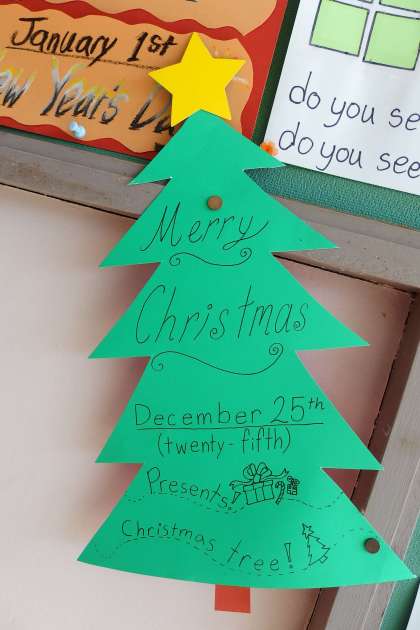 January 1st
New Year's Da
do you se
do you see
Merry
Christmas
December 25th
(twenty-fifth)
Presents!
Christmas tree!